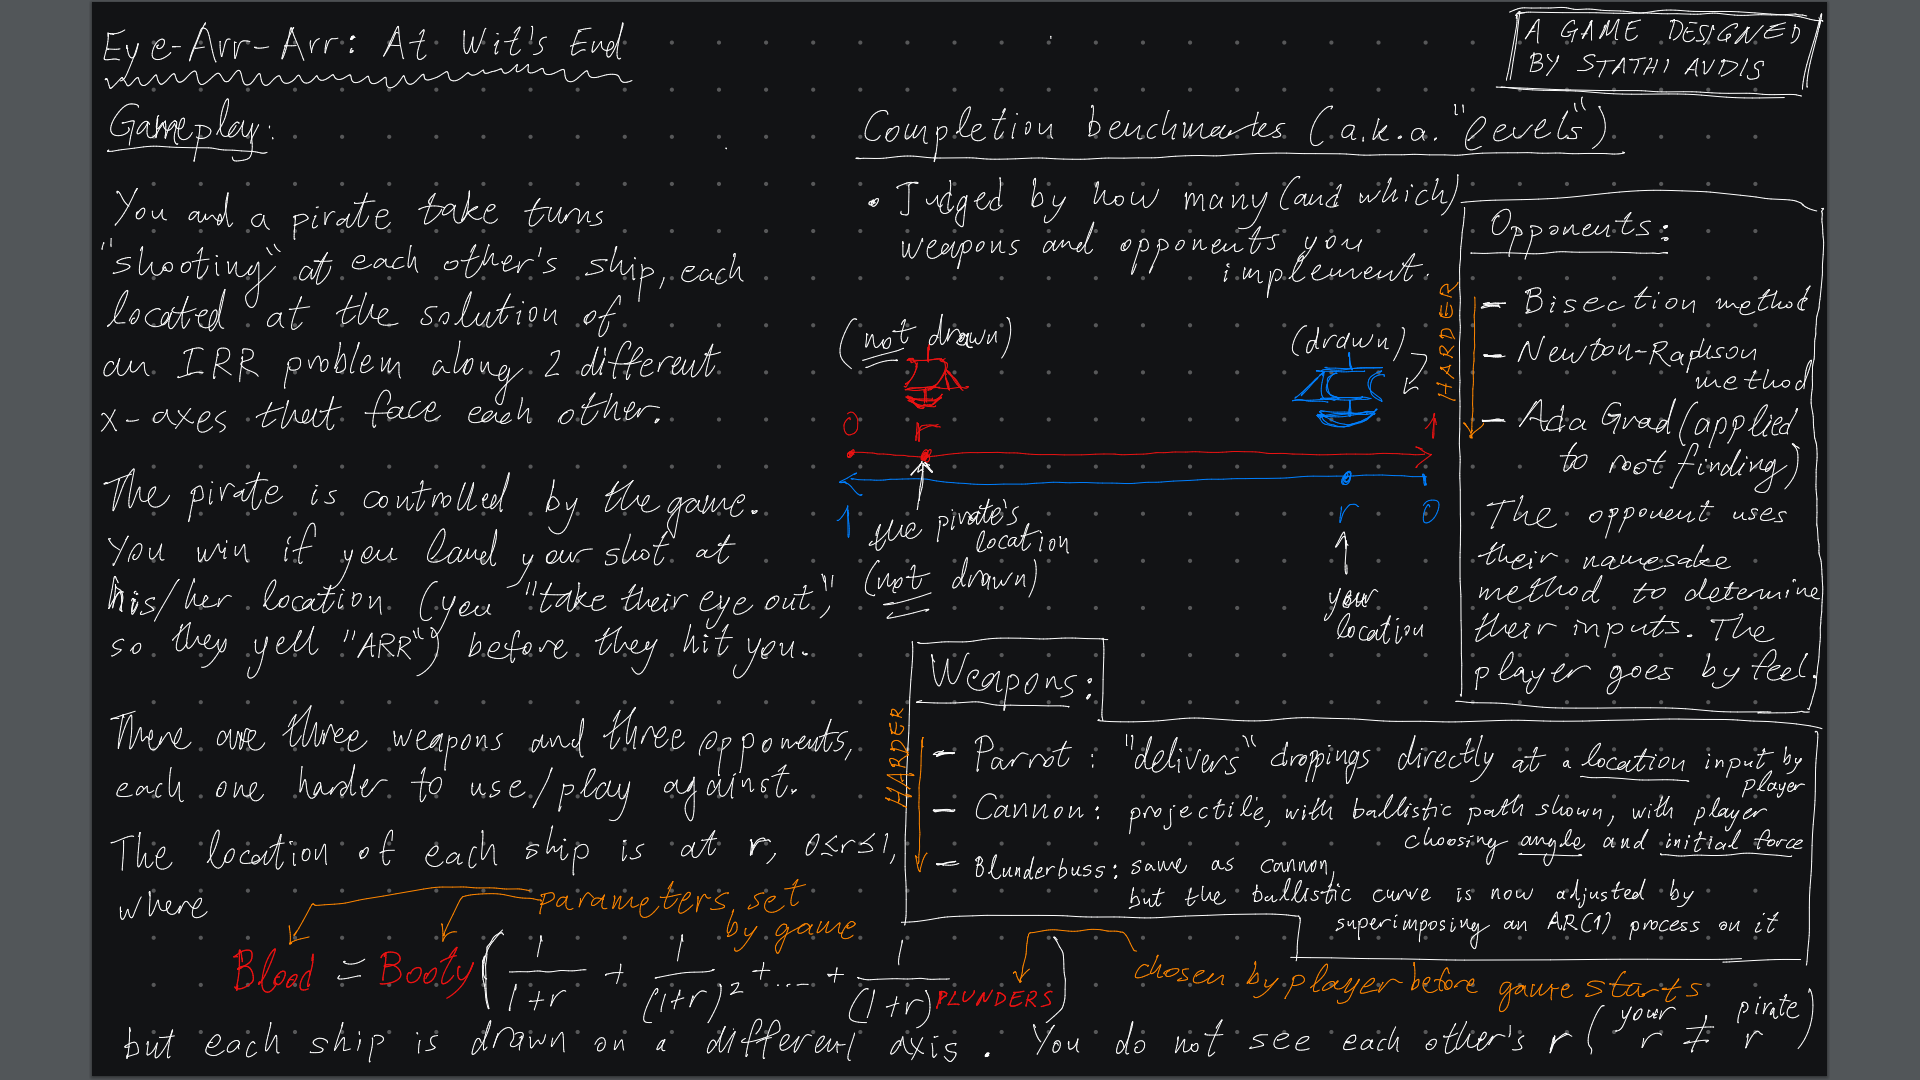 Eye-Arr-Arr: At Wit's End
A GAME DESIGNED
BY STATHI AVDIS
Gameplay:
You and a pirate take turns
"shooting" at each other's ship, each
located at the solution of
an IRR problem along 2 different
x-axes that face each other.
The pirate is controlled by the game.
You win if you land your shot at
his/her location (you "take their eye out,"
so they yell "ARR") before they hit you.
There are three weapons and three opponents,
each one harder to use/play against.
The location of each ship is at r, 0≤r≤1,
where
parameters set
by game
Blood = Booty ( 1/(1+r) + 1/(1+r)² + .... + 1/(1+r) PLUNDERS )
chosen by player before game starts
but each ship is drawn on a different axis. You do not see each other's r ( your r ≠ pirate r )
Completion benchmarks (a.k.a. "levels")
• Judged by how many (and which)
weapons and opponents you
implement.
(not drawn)
(drawn)
0
r
1
1
r
0
the pirate's
location
(not drawn)
your
location
Opponents:
HARDER
- Bisection method
- Newton-Raphson
method
- Ada Grad (applied
to root finding)
The opponent uses
their namesake
method to determine
their inputs. The
player goes by feel.
Weapons:
HARDER
- Parrot: "delivers" droppings directly at a location input by
player
- Cannon: projectile, with ballistic path shown, with player
choosing angle and initial force
- Blunderbuss: same as cannon,
but the ballistic curve is now adjusted by
superimposing an AR(1) process on it